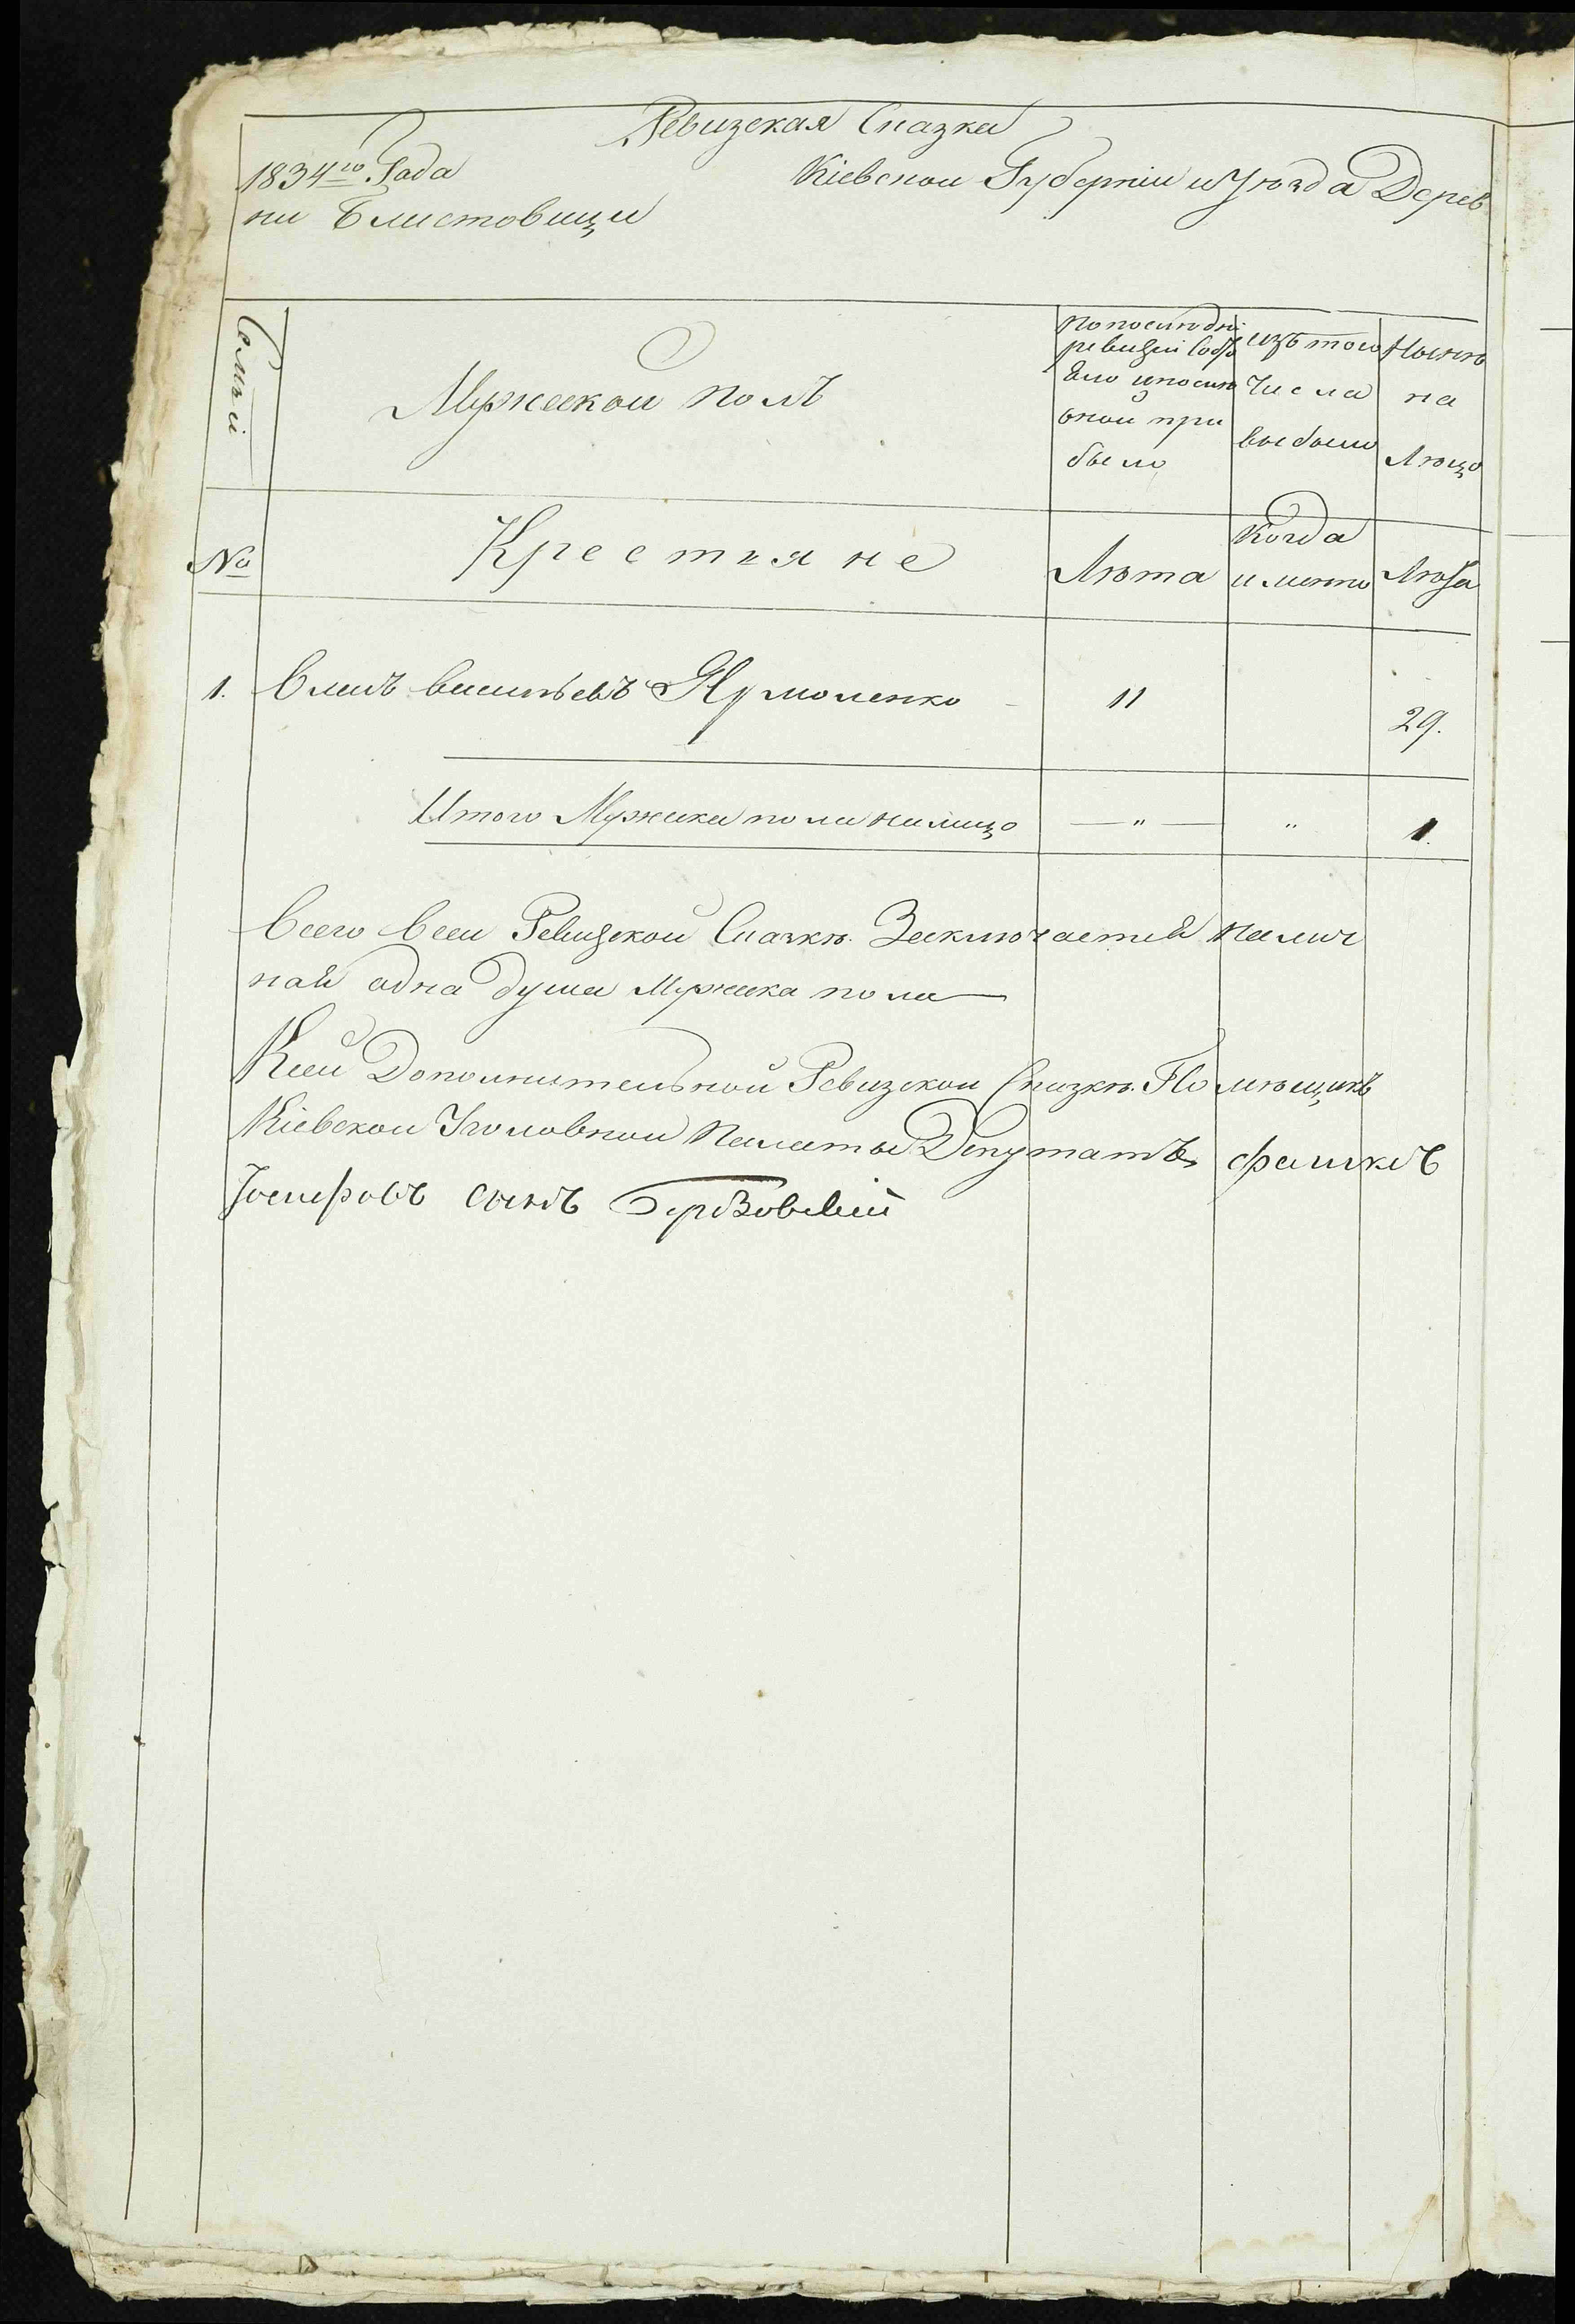 Ревизская Сказка
1834го Года Кіевской Губерніи и Уѣзда Дерев
ни Блистовици
Семьи
Мужеской полъ
По последней
ревизіи Состо
яло и после
оной при
было
изъ того
Числа
выбыло
Нынѣ
на
Лицо
№
Крестьяне
Лѣта
Когда
именно
Лѣта
1. Васильевъ Ярмоленко 11 29.
Итого Мужеска пола налицо — " — " 1.
Всего в сей Ревизской Сказкѣ Заключается Налич
ная одна душа Мужеска пола —
К сей Дополнительной Ревизской Сказкѣ Помѣщикъ
Кіевской Уголовной Палаты Депутатъ
Іосифовъ сынъ